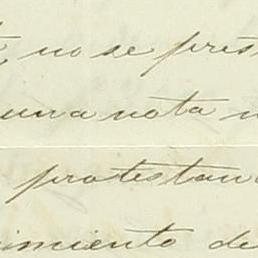 , no se pres
una nota
protestan
imiento de